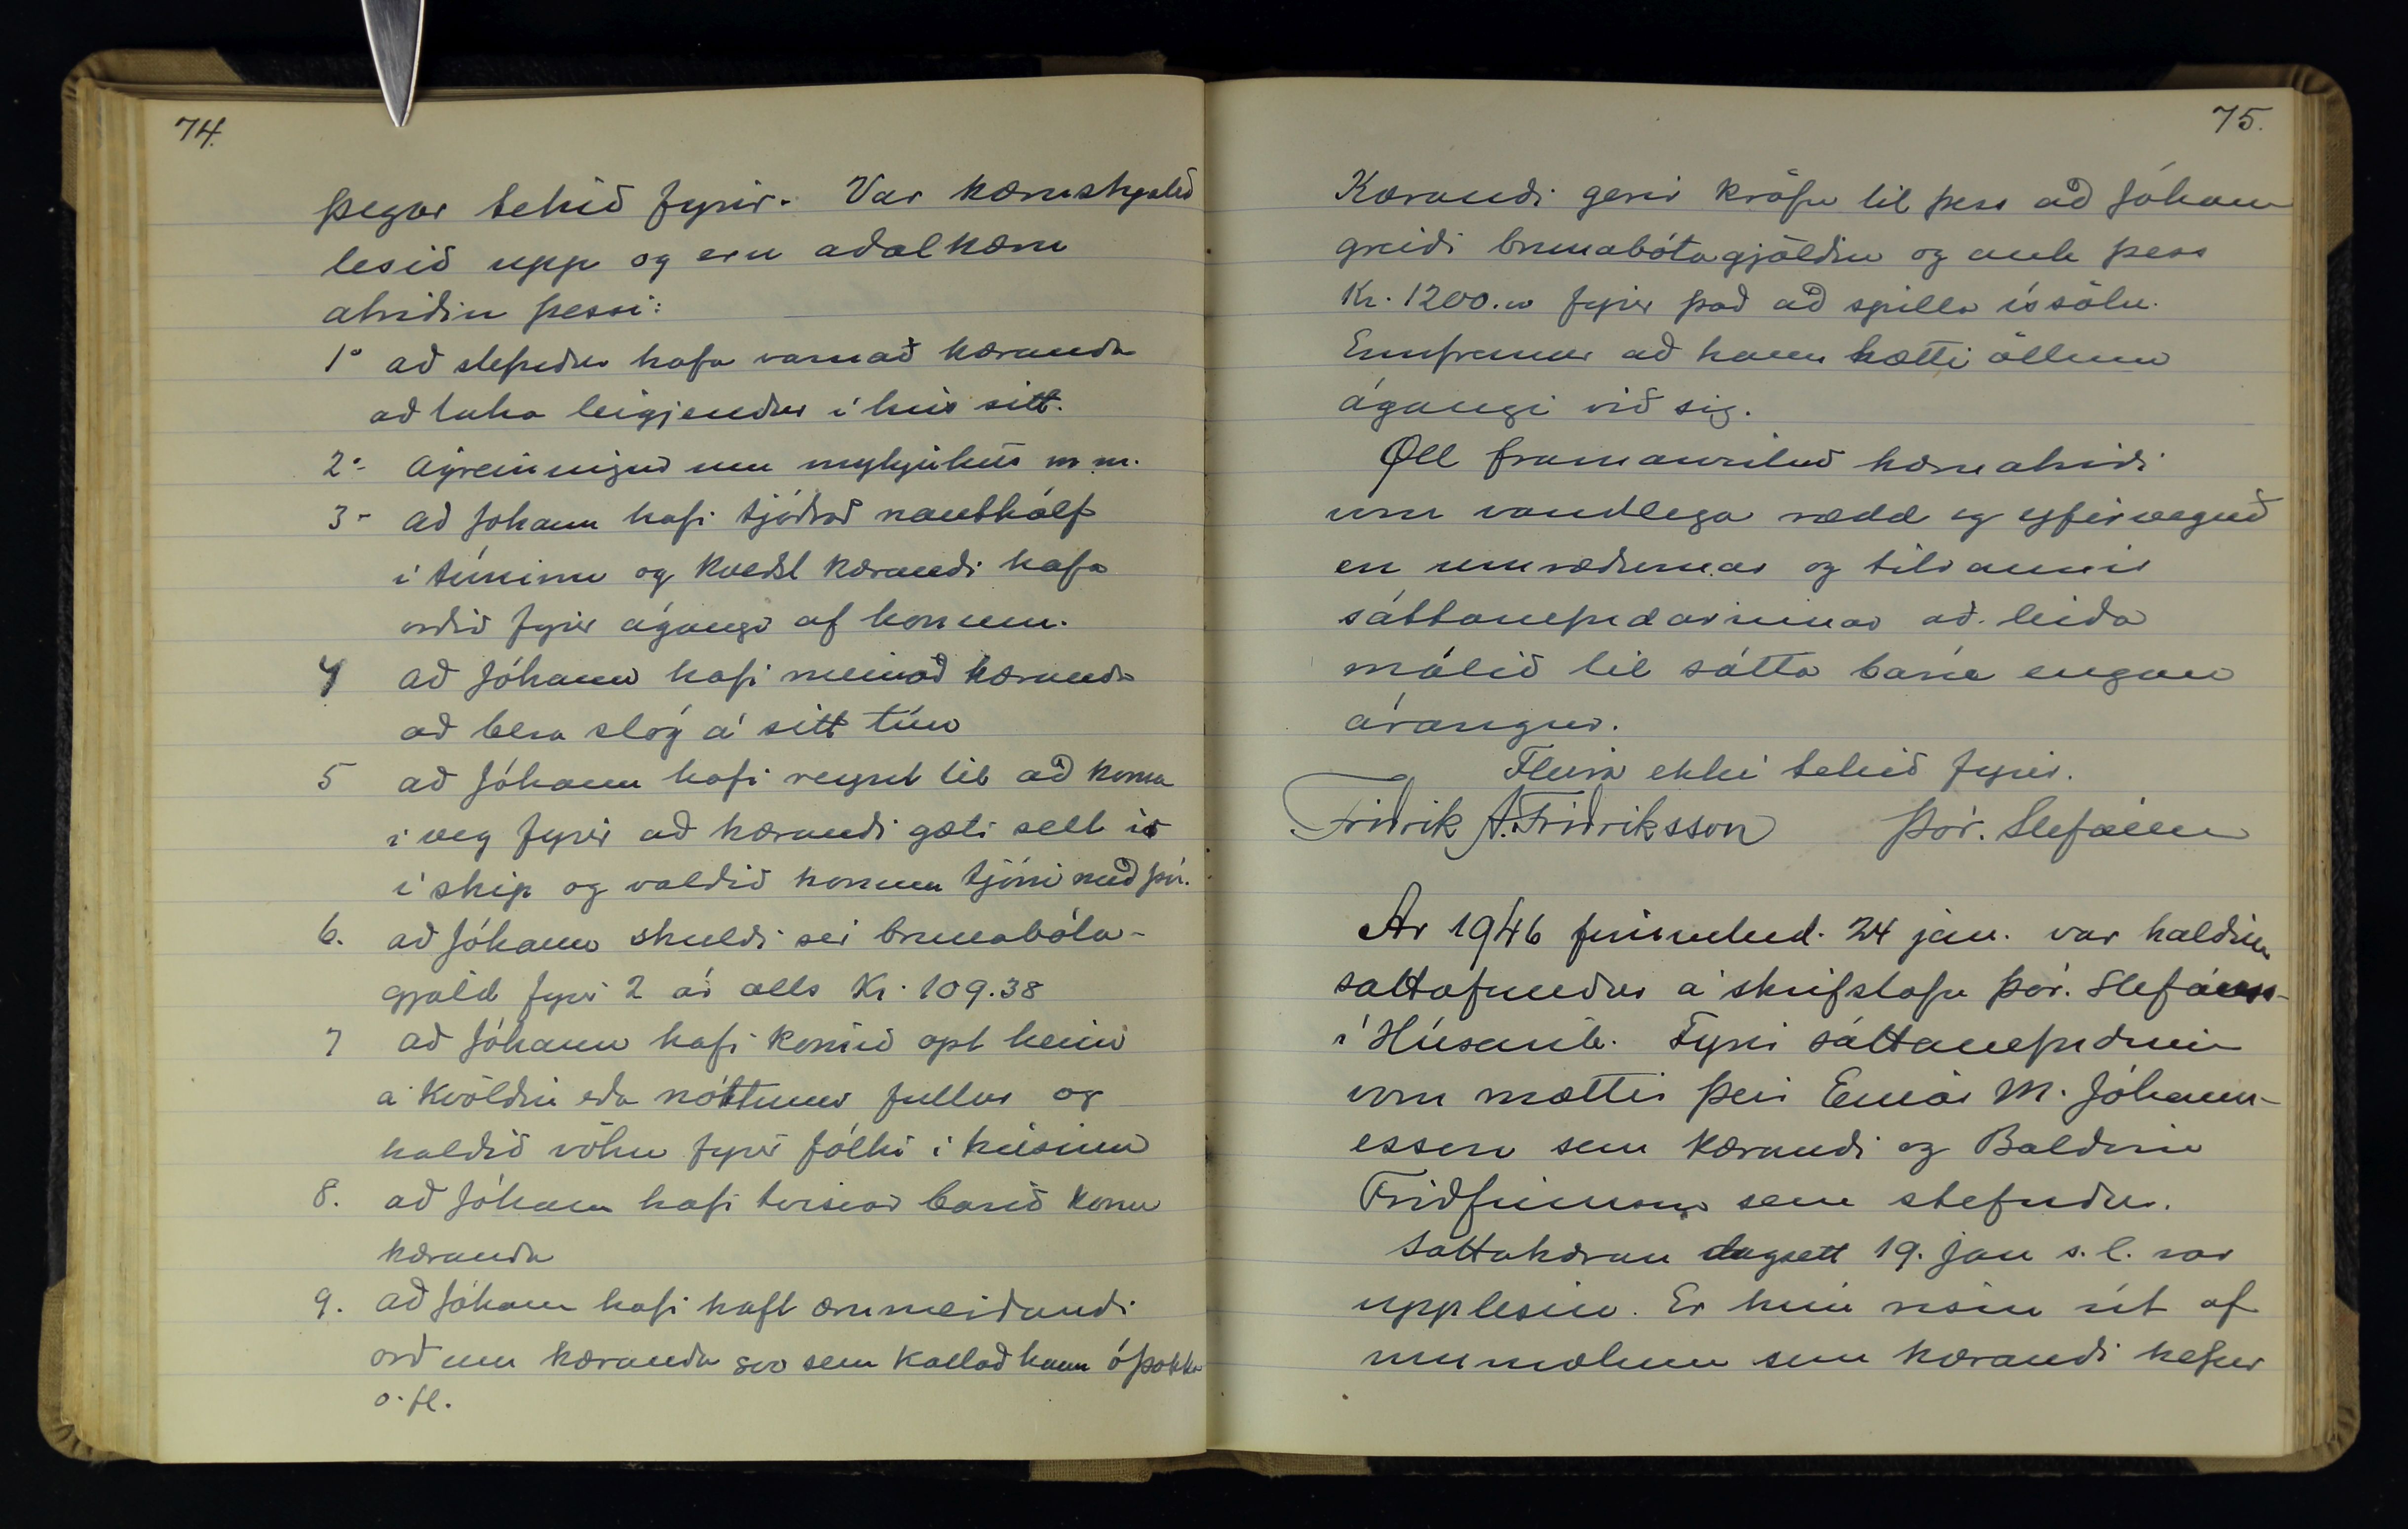 74.
þegar tekið fyrir. Var kæruskjalið
lesið upp og eru aðalkæru
atriðin þessi:
1° að stefndur hafa varnað kæranda
að taka leigjendur í hús sitt.
2°- Ágreiningur um mykjuhús m m.
3- að Jóhann hafi tjóðrað nautkálf
í túninu og kveðst kærandi hafa
orðið fyrir ágangi af honum.
4 að Jóhann hafi meinað kæranda
að bera slóg á sitt tún
5 að Jóhann hafi reynt til að koma
í veg fyrir að kærandi gæti selt ís
í skip og valdið honum tjóni með því.
6. að Jóhann skuldi sér brunabóta-
gjöld fyrir 2 ár alls Kr. 109.38
7 að Jóhann hafi komið opt heim
á kvöldin eða nóttunni fullur og
haldið vöku fyrir fólki í húsinu
8. að Jóhann hafi tvisvar barið konu
kæranda
9. að Jóhann hafi haft ærumeiðandi
orð um kæranda svo sem kallað hann óþokka
o. fl.
75.
Kærandi gerir kröfu til þess að Jóhann
greiði brunabótagjöldin og auk þess
Kr. 1200.00 fyrir það að spilla íssölu.
Ennfremur að hann hætti öllum
ágangi við sig.
Öll framanrituð kæruatriði
voru vandlega rædd og yfirveguð
en umræðurnar og tilraunir
sáttanefndarinnar að leiða
málið til sátta báru engan
árangur.
Fleira ekki tekið fyrir.
Friðrik A. Friðriksson Þór. Stefánsson
Ár 1946 fimmtud. 24 jan. var haldinn
sáttafundur á skrifstofu Þór. Stefánss-
í Húsavík. Fyrir sáttanefndinni
voru mættir þeir Einar M. Jóhann-
esson sem kærandi og Baldvin
Friðfinnsson sem stefndur.
Sáttakæran dagsett 19. jan s.l. var
upplesin. Er hún risin út af
ummælum sem kærandi hefur